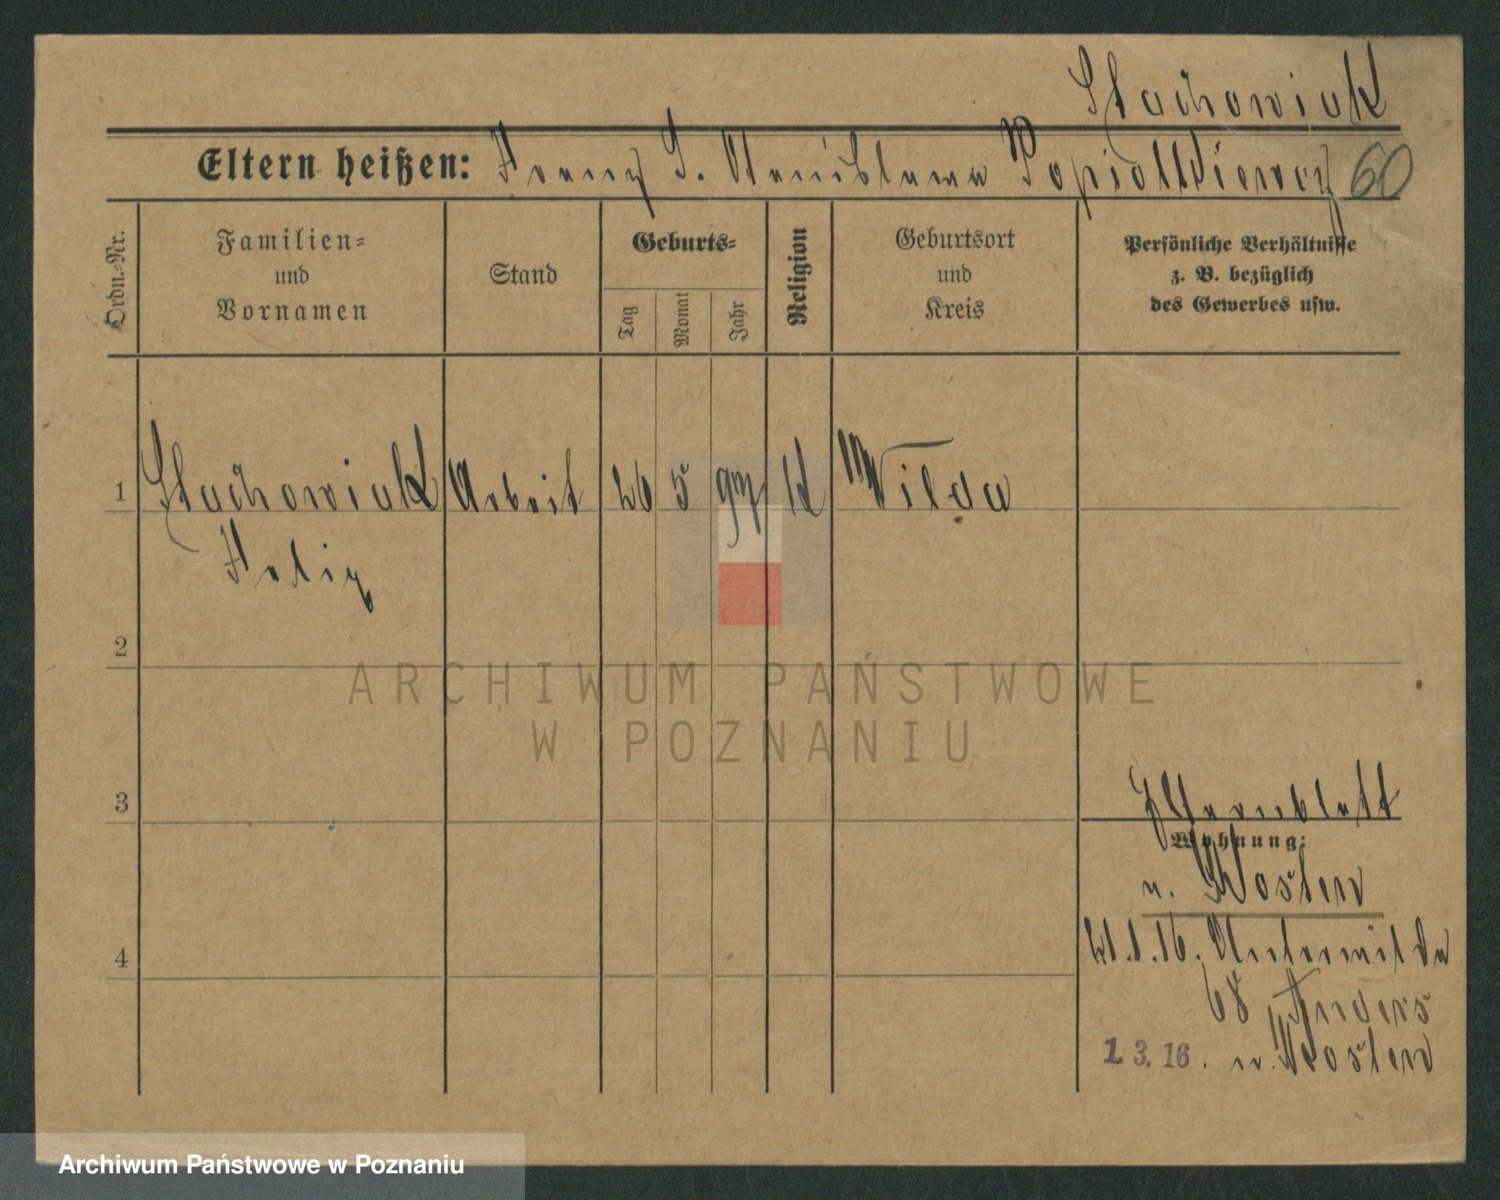 Stachowiak
Eltern heißen: Franz S. Stanislawa Popiolkiewicz 60
Ordn.-Nr.
Familien-
und
Vornamen
Stand
Geburts-
Tag
Monat
Jahr
Religion
Geburtsort
und
Kreis
Persönliche Verhältnisse
z. B. bezüglich
des Gewerbes usw.
1 Stachowiak Arbeit 26 5 97 K Wilda
Felix
2
ARCHIWUM PAŃSTWOWE
W POZNANIU
3
Elternblatt
Wohnung:
n. Kosten
4
21.1.16. Unterwilda
68 Anders
1.3.16. n. Kosten
Archiwum Państwowe w Poznaniu